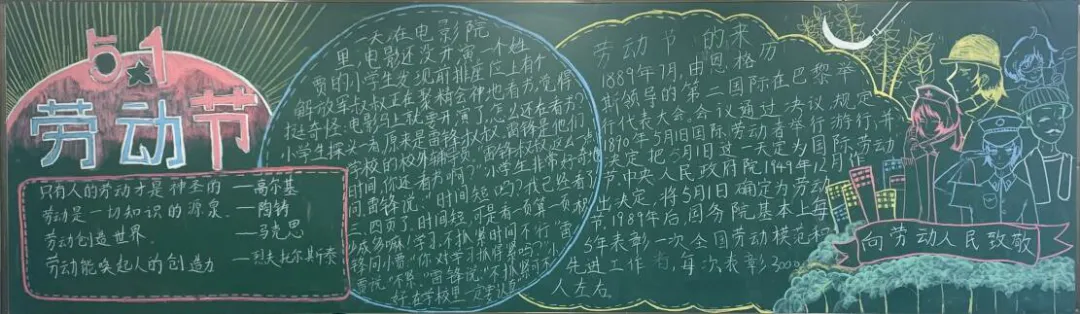 51
劳动节
只有人的劳动才是神圣的 —高尔基
劳动是一切知识的源泉 —陶铸
劳动创造世界. —马克思
劳动能唤起人的创造力 —烈夫托尔斯泰
一天在电影院
里,电影还没开演,一个姓
贾的小学生发现前排座位上有个
解放军叔叔正在聚精会神地看书,觉得
挺奇怪,电影马上就要开演了,怎么还在看书?
小学生探头一看,原来是雷锋叔叔.雷锋是他们
学校的校外辅导
时间,你还看书啊?"小学生非常好奇地
问.雷锋说:"时间短吗?我已经看了
三、四页了,时间短,可是看一页算一页,积
少成多嘛!学习,不抓紧时间不行."雷
锋问小曹:"你对学习抓得紧吗?"小
曹说:"不紧."雷锋说:"不抓紧可不
好,在学校里一定要认真
劳动节的来历
1889年7月,由恩格
斯领导的第二国际在巴黎举
行代表大会。会议通过决议,规定
1890年5月1日国际劳动者举行游行,并
决定把5月1日这一天定为国际劳动
节.中央人民政府院1949年12月作
出决定,将5月1日确定为劳动
节.1989年后,国务院基本上每
5年表彰一次全国劳动模范和
先进工作者,每次表彰3000
人左右.
向劳动人民致敬